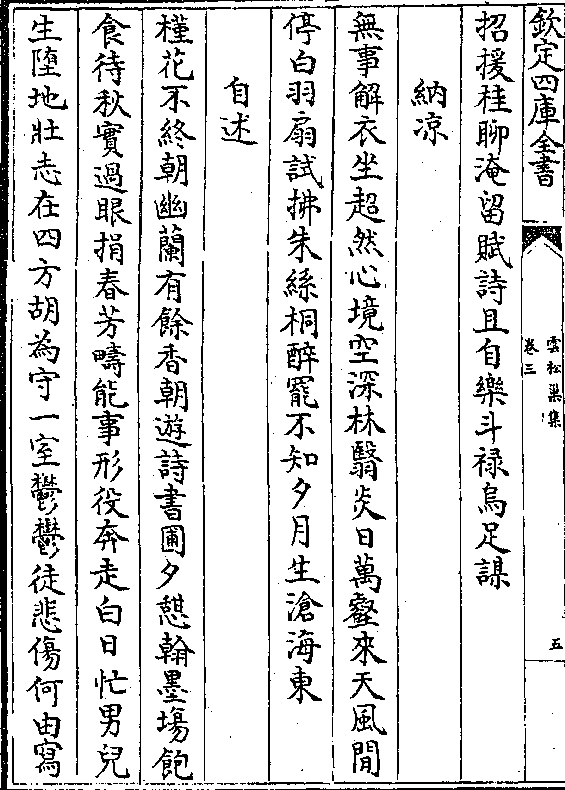 欽定四庫全書
雲松巢集
卷三
五
招援桂聊淹留賦詩且自樂斗禄烏足謀
納凉
無事解衣坐超然心境空深林翳炎日萬壑來天風閒
停白羽扇試拂朱絲桐醉罷不知夕月生滄海東
自述
槿花不終朝幽蘭有餘香朝遊詩書圃夕憇翰墨塲飽
食待秋實過眼捐春芳疇能事形役奔走白日忙男兒
生墮地壯志在四方胡為守一室鬱鬱徒悲傷何由寫